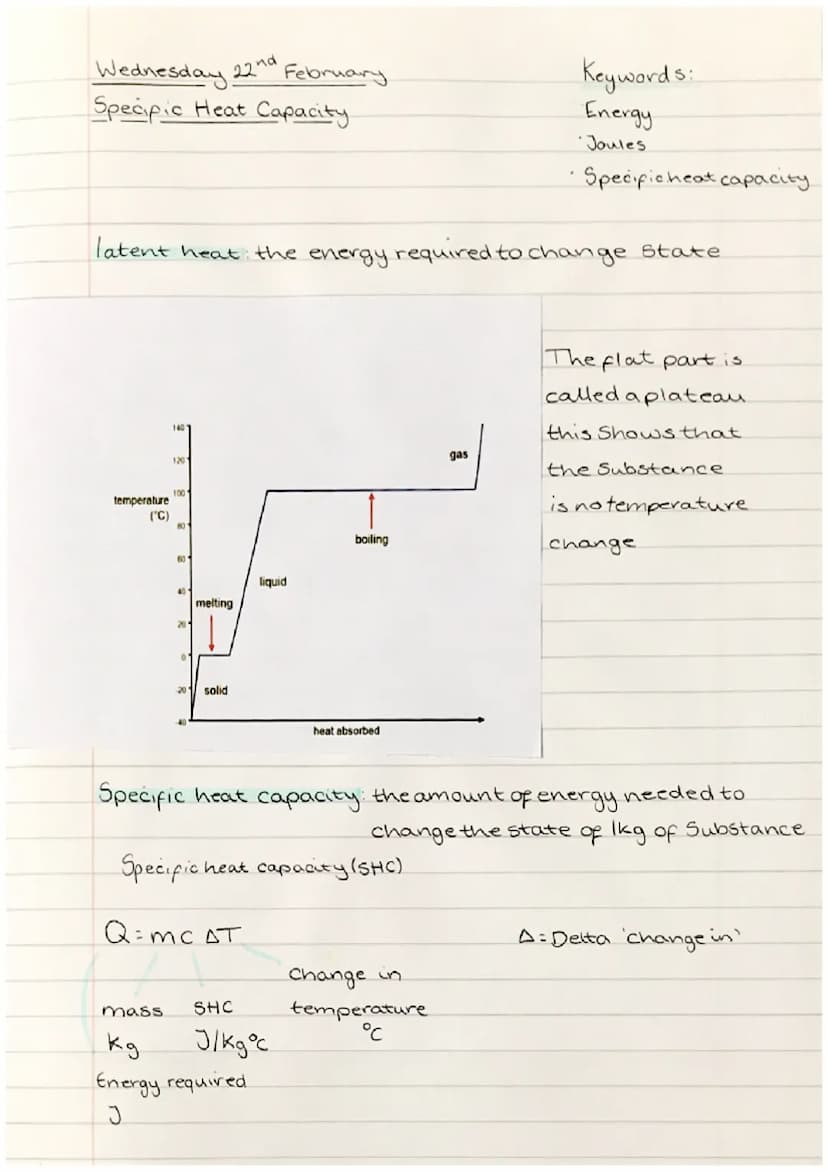 Wednesday 22nd February
Specific Heat Capacity
Keywords:
Energy
· Joules
· Specific heat capacity
latent heat: the energy required to change state
The flat part is
called a plateau
this shows that
the substance
is no temperature
change
140
120
100
80
60
40
20
0
-20
-40
temperature
(°C)
gas
boiling
liquid
melting
solid
heat absorbed
Specific heat capacity: the amount of energy needed to
change the state of 1kg of substance
Specific heat capacity (SHC)
Q = mc ΔT
Δ = Delta 'change in'
Change in
mass SHC temperature
kg J/kg°c °c
Energy required
J